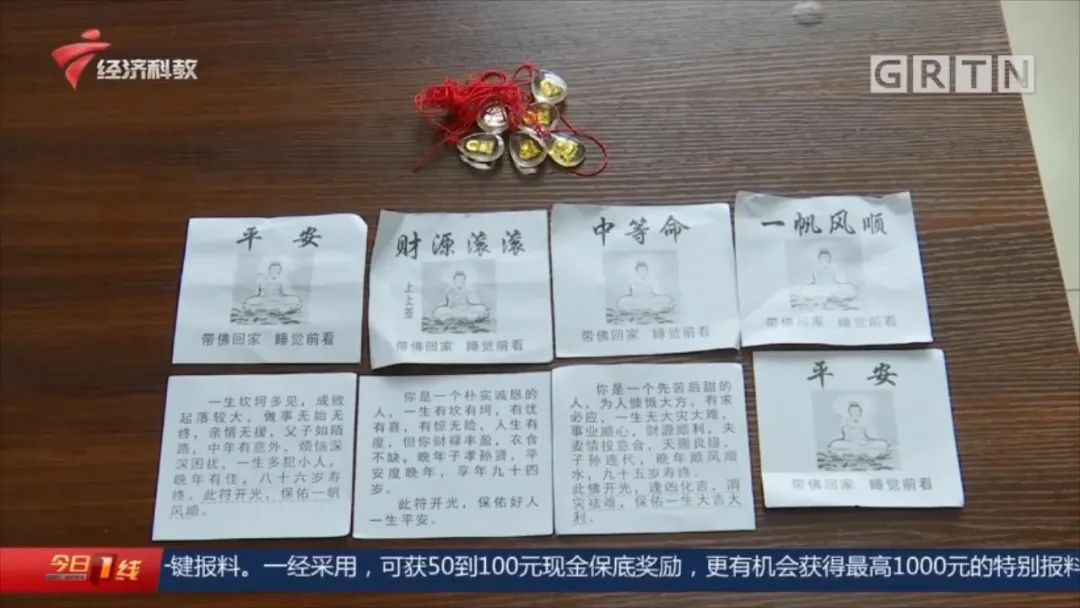 经济科教
GRTN
平 安
带佛回家 睡觉前看
财源滚滚
上上签
带佛回家 睡觉前看
中等命
带佛回家 睡觉前看
一帆风顺
带佛回家 睡觉前看
一生坎坷多见，成败
起落较大，做事无始无
终，亲情无缓，父子如陌
路，中年有意外，烦恼深
深困扰，一生多犯小人，
晚年有佳，八十六岁寿
终。此符开光，保佑一帆
风顺。
你是一个朴实诚恳的
人，一生有坎有坷，有忧
有喜，有惊无险，人生有
度，但你财禄丰盈，衣食
不缺，晚年子孝孙贤，平
安度晚年，享年九十四
岁。
此符开光，保佑好人
一生平安。
你是一个先苦后甜的
人，为人慷慨大方，有求
必应，一生无大灾大难，
事业顺心，财源顺利，夫
妻情投意合，天赐良缘，
子孙连代，晚年顺风顺
水，九十五岁寿终。
此佛开光，逢凶化吉，消
灾祛难，保佑一生大吉大
利。
平 安
带佛回家 睡觉前看
今日1线
一键报料。一经采用，可获50到100元现金保底奖励，更有机会获得最高1000元的特别报料